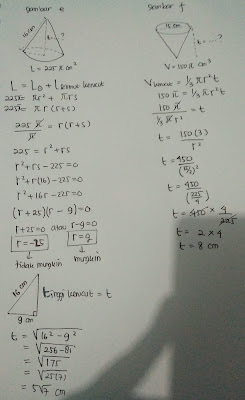 Gambar e
16 cm
L = 225 π cm²
L = L₀ + Lselimut kerucut
225π = πr² + πrs
225π = πr (r+s)
225 π / π = r (r+s)
225 = r² + rs
r² + rs - 225 = 0
r² + r(16) - 225 = 0
r² + 16r - 225 = 0
(r + 25)(r - 9) = 0
r+25=0 atau r-9=0
r = -25 r = 9
tidak mungkin mungkin
16 cm
9 cm
tinggi kerucut = t
t = √16² - 9²
= √256 - 81
= √175
= √25(7)
= 5√7 cm
Gambar f
15 cm
t = ... ?
V = 150 π cm³
Vkerucut = 1/3 πr²t
150 π = 1/3 πr²t
150 π / 1/3 π r² = t
t = 150 (3) / r²
t = 450 / (15/2)²
t = 450 / (225/4)
t = 450 × 4/225
t = 2 × 4
t = 8 cm